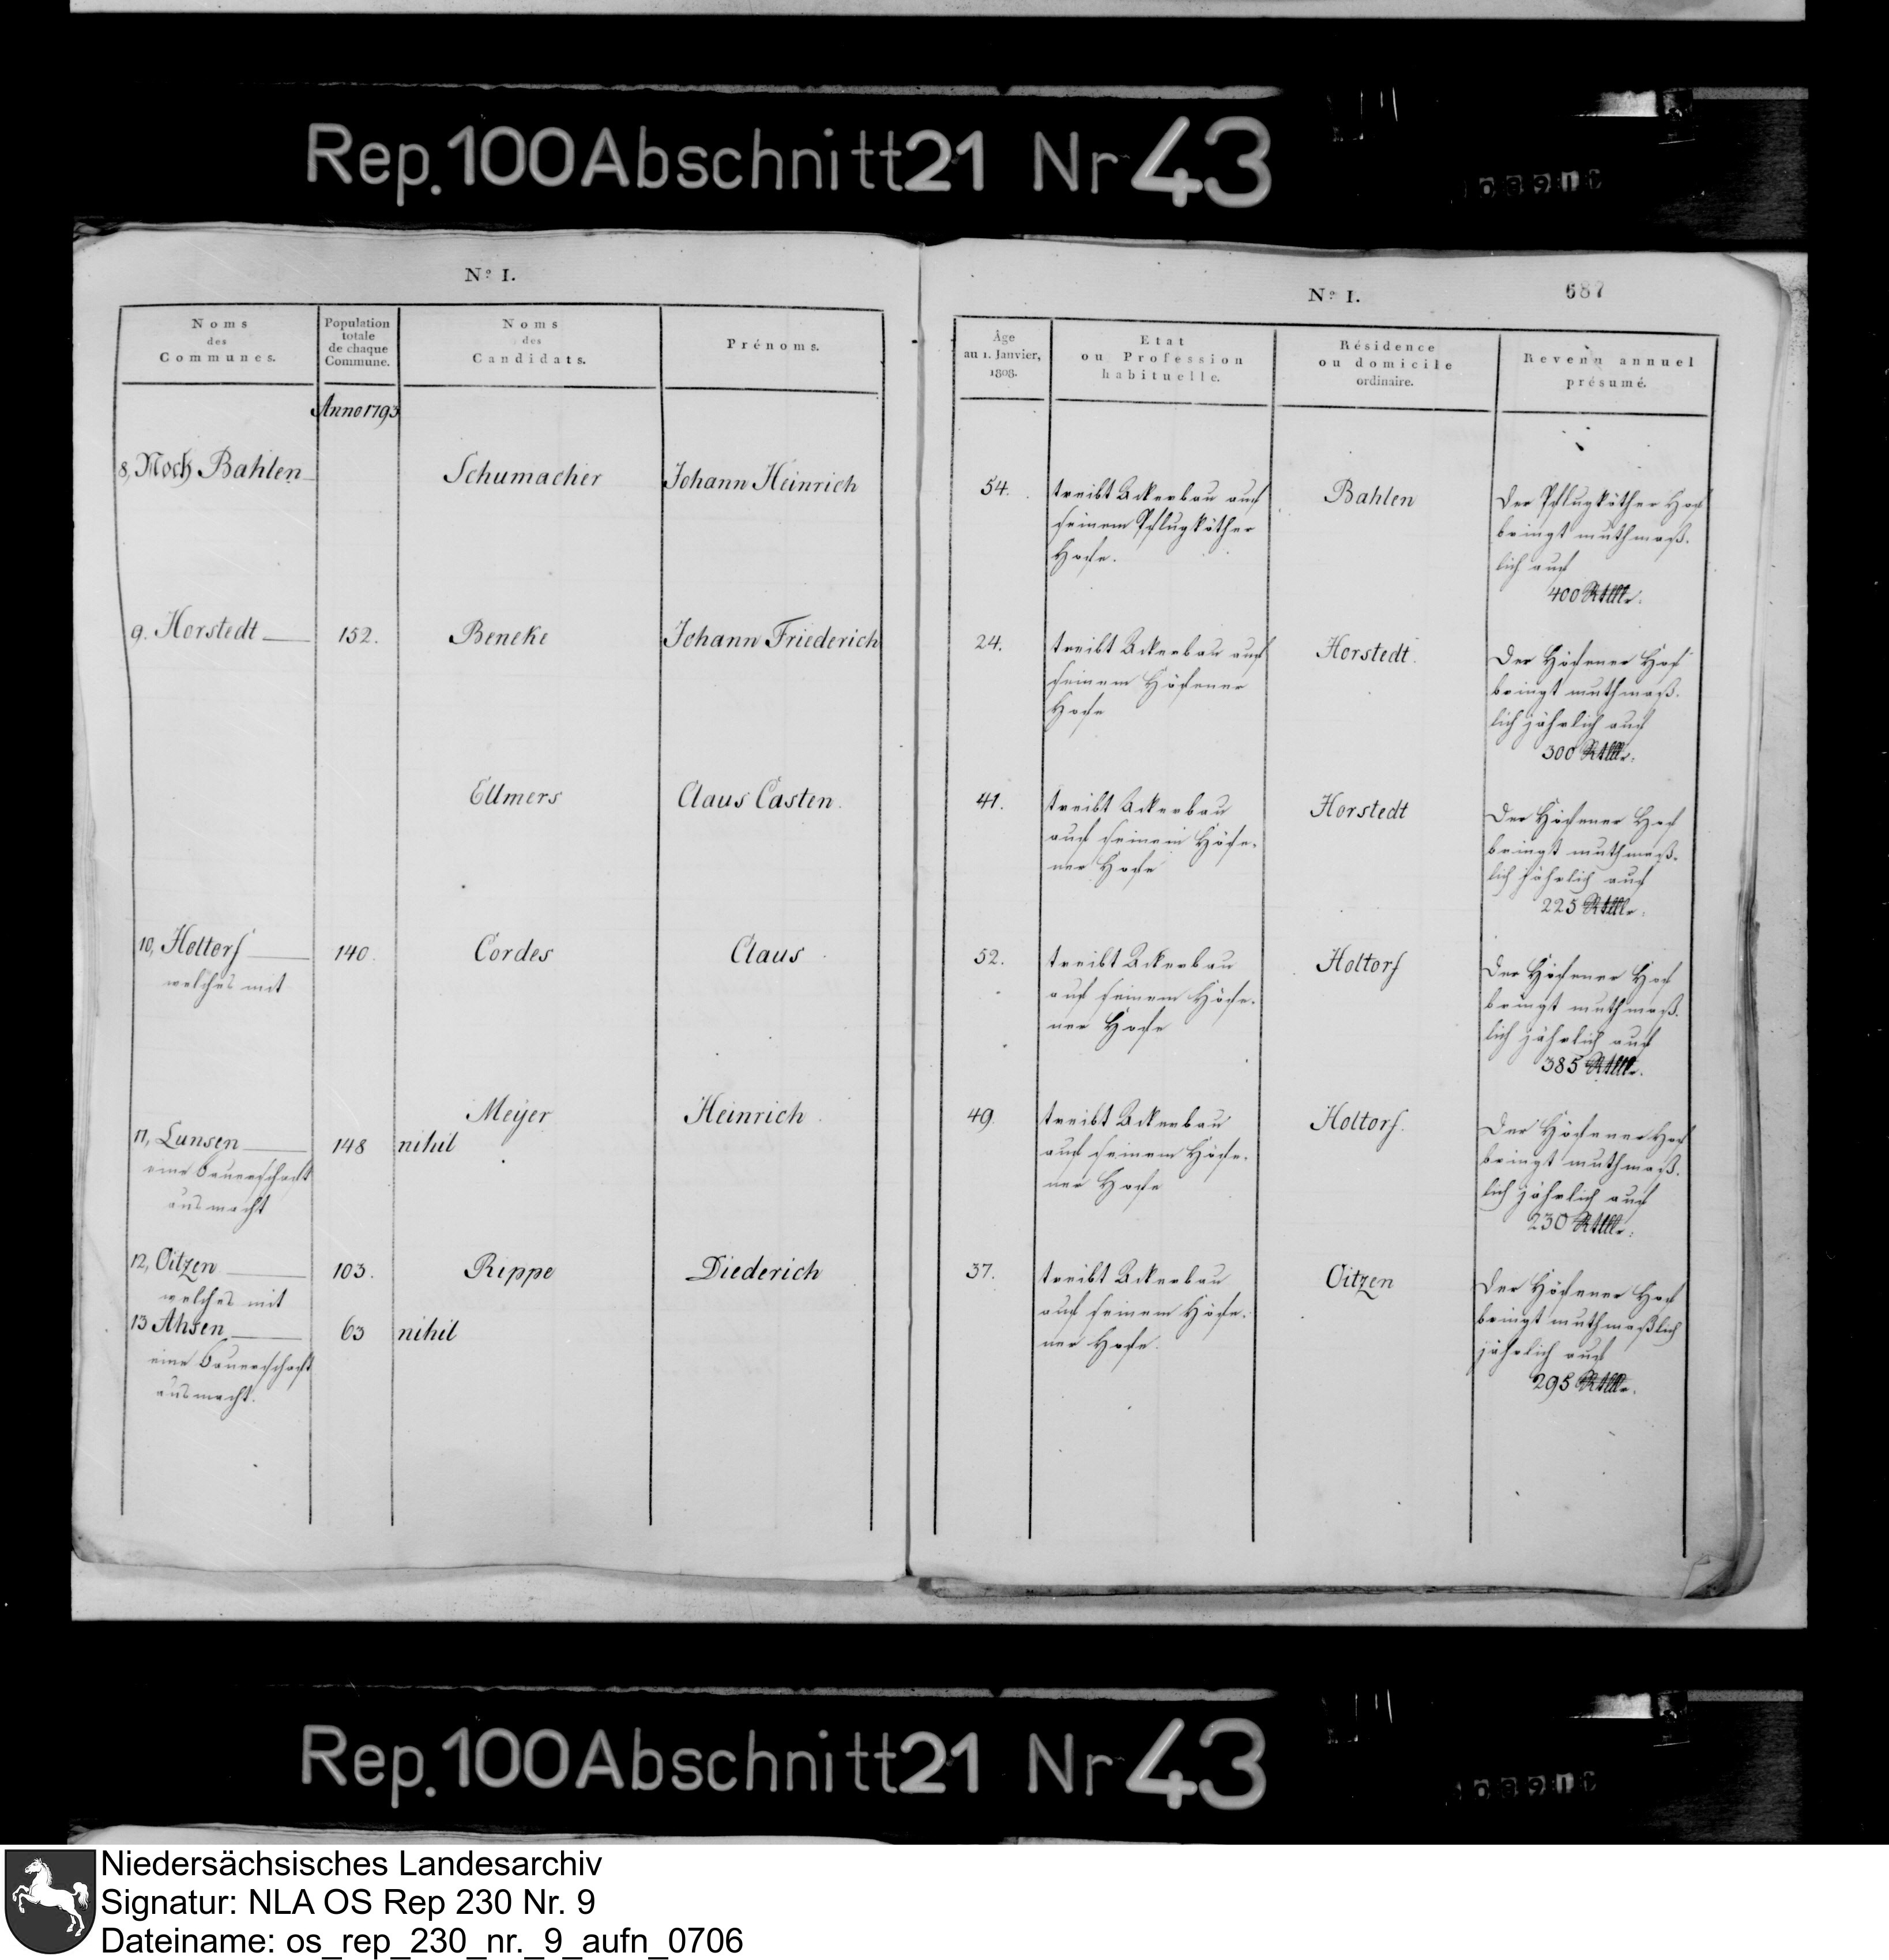 Rep. 100 Abschnitt 21 Nr 43
Nº I.
Noms
des
Communes.
Population
totale
de chaque
Commune.
Noms
des
Candidats.
Prénoms.
Anno 1793
8, Noch Bahlen
Schumacher
Johann Heinrich
9. Horstedt
152.
Beneke
Johann Friederich
Ellmers
Claus Casten.
10, Holtorf
140.
Cordes
Claus
welches mit
Meyer
Heinrich
11, Lunsen
148
nihil
eine Bauerschaft
ausmacht
12, Oitzen
103.
Rippe
Diederich
welches mit
13 Ahsen
63
nihil
eine Bauerschaft
ausmacht.
Nº I.
687
Âge
au 1. Janvier,
1808.
Etat
ou Profession
habituelle.
Résidence
ou domicile
ordinaire.
Revenu annuel
présumé.
54.
treibt Ackerbau auf
seinem Pflugköther
Hofe.
Bahlen
Der Pflugköther Hof
bringt muthmaß-
lich auf
400 Rthlr.
24.
treibt Ackerbau auf
seinem Höfener
Hofe
Horstedt.
Der Höfener Hof
bringt muthmaß-
lich jährlich auf
300 Rthlr.
41.
treibt Ackerbau
auf seinem Höfe-
ner Hofe
Horstedt
Der Höfener Hof
bringt muthmaß-
lich jährlich auf
225 Rthlr.
52.
treibt Ackerbau
auf seinem Höfe-
ner Hofe
Holtorf
Der Höfener Hof
bringt muthmaß-
lich jährlich auf
385 Rthlr.
49.
treibt Ackerbau
auf seinem Höfe-
ner Hofe
Holtorf.
Der Höfener Hof
bringt muthmaß-
lich jährlich auf
230 Rthlr.
37.
treibt Ackerbau
auf seinem Höfe-
ner Hofe.
Oitzen
Der Höfener Hof
bringt muthmaßlich
jährlich auf
295 Rthlr.
Rep. 100 Abschnitt 21 Nr 43
Niedersächsisches Landesarchiv
Signatur: NLA OS Rep 230 Nr. 9
Dateiname: os_rep_230_nr._9_aufn_0706